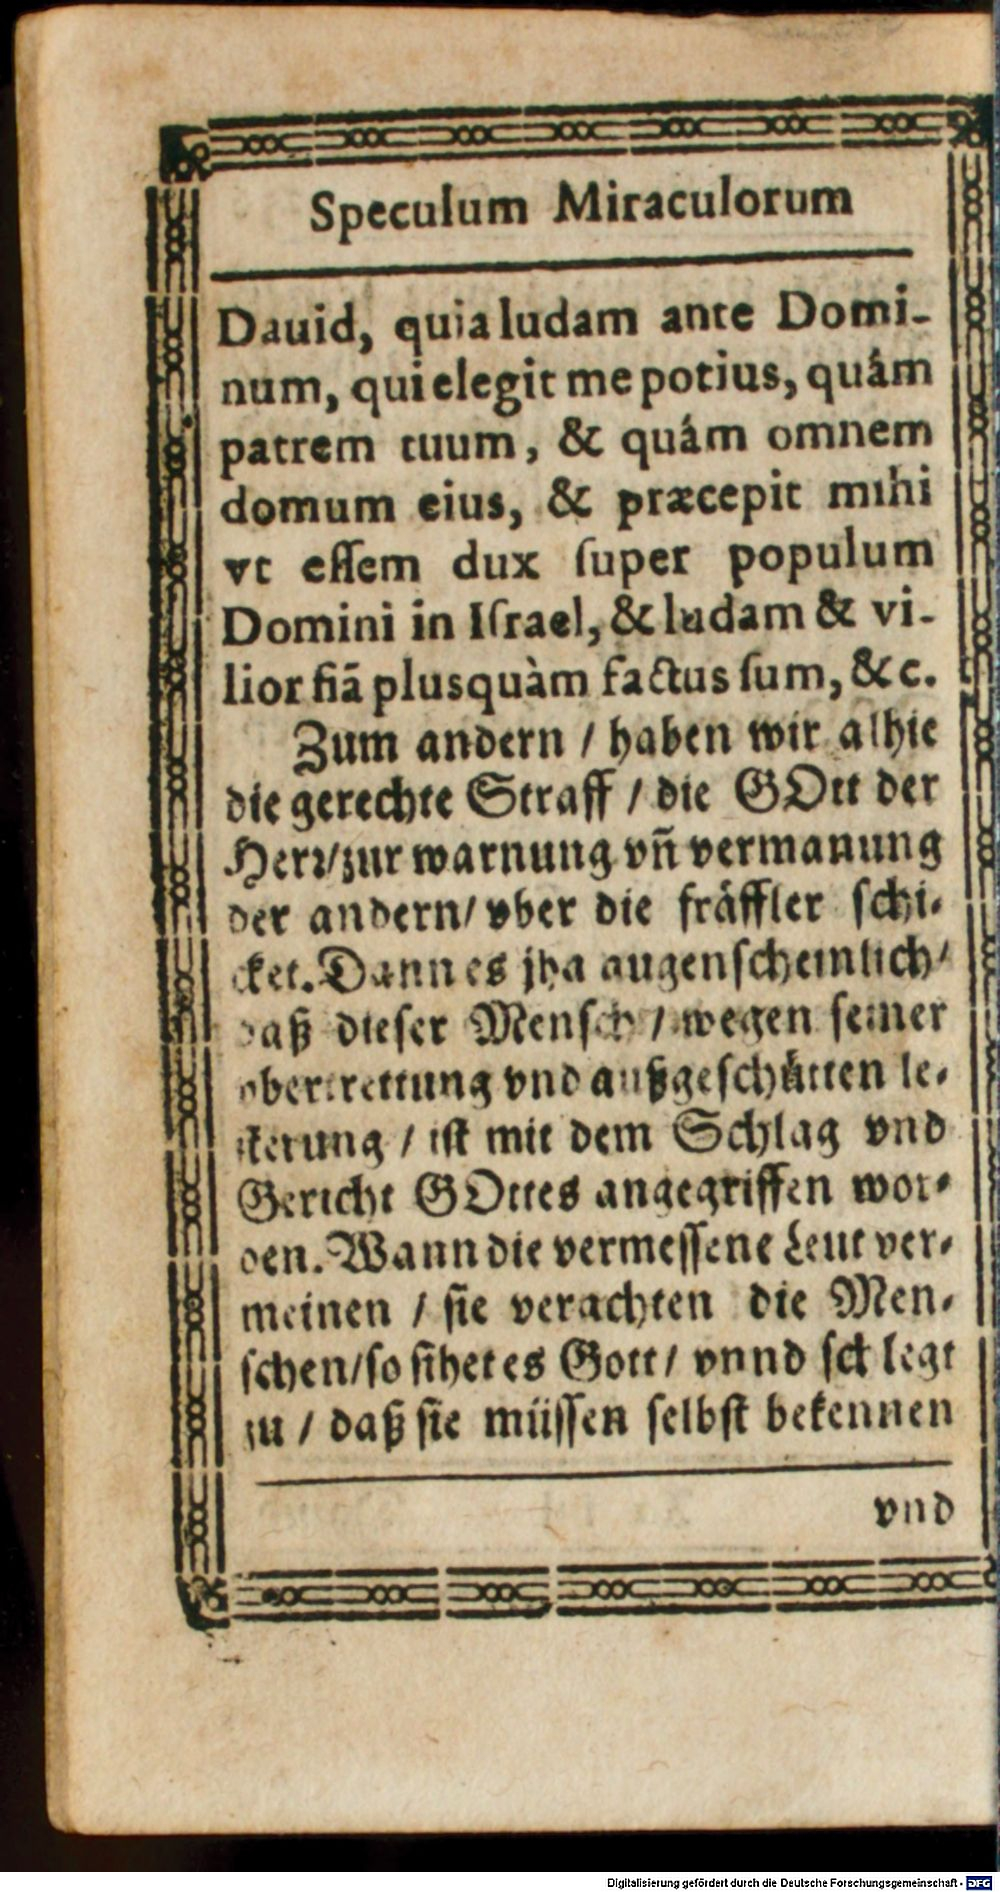 Speculum Miraculorum
Dauid, quia ludam ante Domi-
num, qui elegit me potius, quám
patrem tuum, & quám omnem
domum eius, & præcepit mihi
vt eſſem dux ſuper populum
Domini in Iſrael, & ludam & vi-
lior fiā plusquàm factus ſum, &c.
Zum andern / haben wir alhie
die gerechte Straff / die GOtt der
Herr/zur warnung vñ vermanung
der andern/ vber die fräffler ſchi-
cket. Dann es jha augenſcheinlich/
daß dieſer Menſch / wegen ſeiner
vbertrettung vnd außgeſchütten le-
ſterung / iſt mit dem Schlag vnd
Gericht GOttes angegriffen wor-
den. Wann die vermeſſene Leut ver-
meinen / ſie verachten die Men-
ſchen/ſo ſihet es Gott/ vnnd ſchlegt
zu / daß ſie müſſen ſelbſt bekennen
vnd
Digitalisierung gefördert durch die Deutsche Forschungsgemeinschaft - DFG